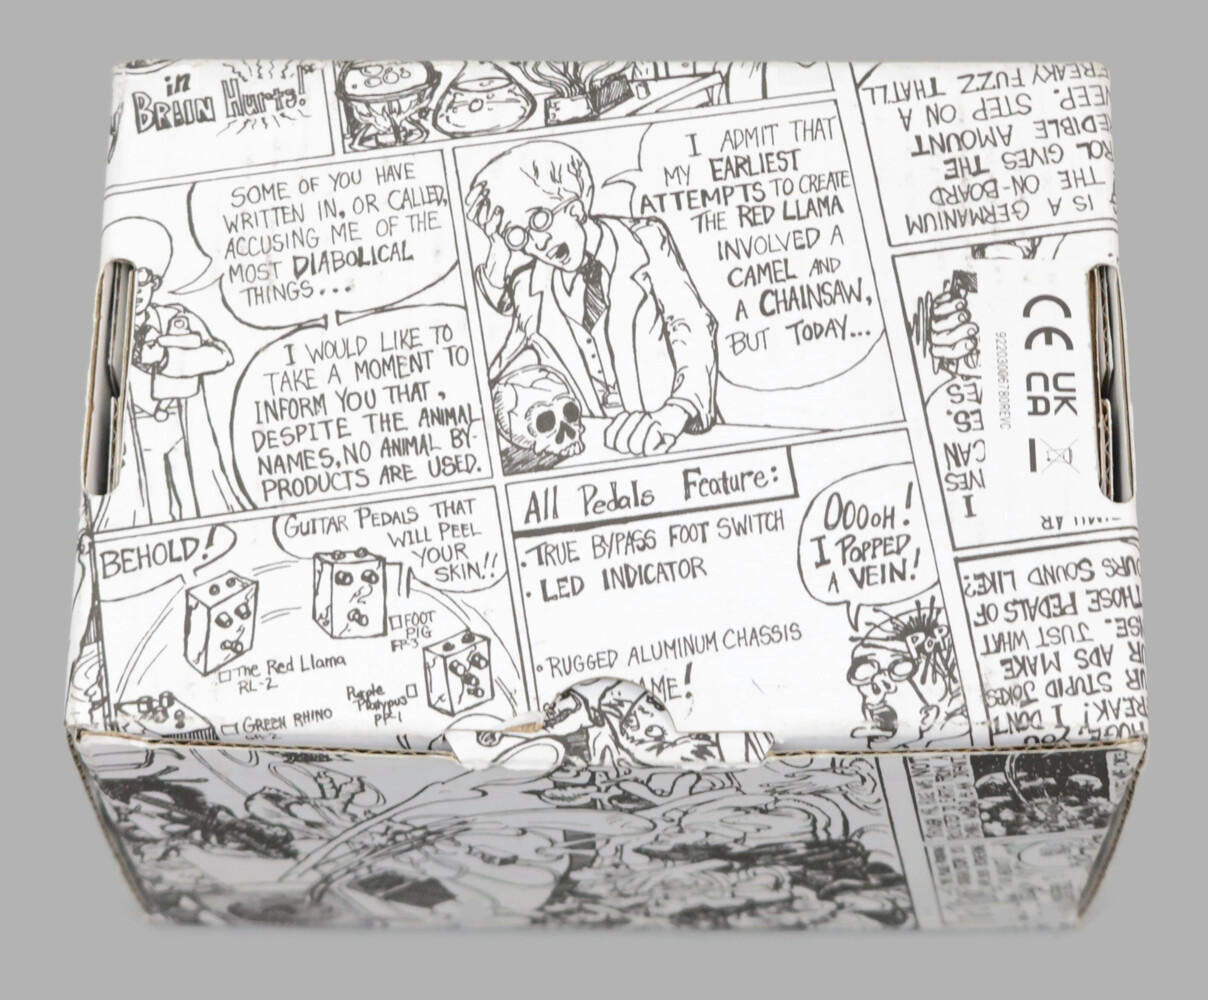 in
BRAIN Hurts!
SOME OF YOU HAVE
WRITTEN IN, OR CALLED,
ACCUSING ME OF THE
MOST DIABOLICAL
THINGS...
I WOULD LIKE TO
TAKE A MOMENT TO
INFORM YOU THAT,
DESPITE THE ANIMAL
NAMES, NO ANIMAL BY-
PRODUCTS ARE USED.
I ADMIT THAT
MY EARLIEST
ATTEMPTS TO CREATE
THE RED LLAMA
INVOLVED A
CAMEL AND
A CHAINSAW,
BUT TODAY...
BEHOLD!
GUITAR PEDALS THAT
WILL PEEL
YOUR
SKIN!!
FOOT
PIG
FP-3
The Red Llama
RL-2
Purple
Platypus
PP-1
GREEN RHINO
All Pedals Feature:
. TRUE BYPASS FOOT SWITCH
. LED INDICATOR
• RUGGED ALUMINUM CHASSIS
AME!
OOOOH!
I POPPED
A VEIN!
POP
IS A GERMANIUM
THE ON-BOARD
ROL GIVES THE
EDIBLE AMOUNT
EEP. STEP ON A
FREAKY FUZZ THAT'LL
CE
UK
CA
92203006780REVC
I
NES CAN
ES.
OURS SOUND LIKE?
THOSE PEDALS OF
SE. JUST WHAT
UR ADS MAKE
UR STUPID JOKES
REAK! I DON'T
HUGE! YOU